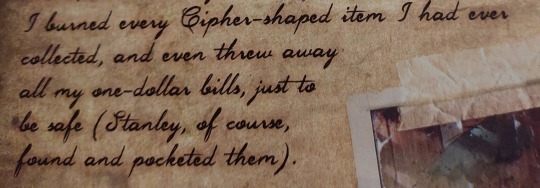 I burned every Cipher-shaped item I had ever
collected, and even threw away
all my one-dollar bills, just to
be safe (Stanley, of course,
found and pocketed them).